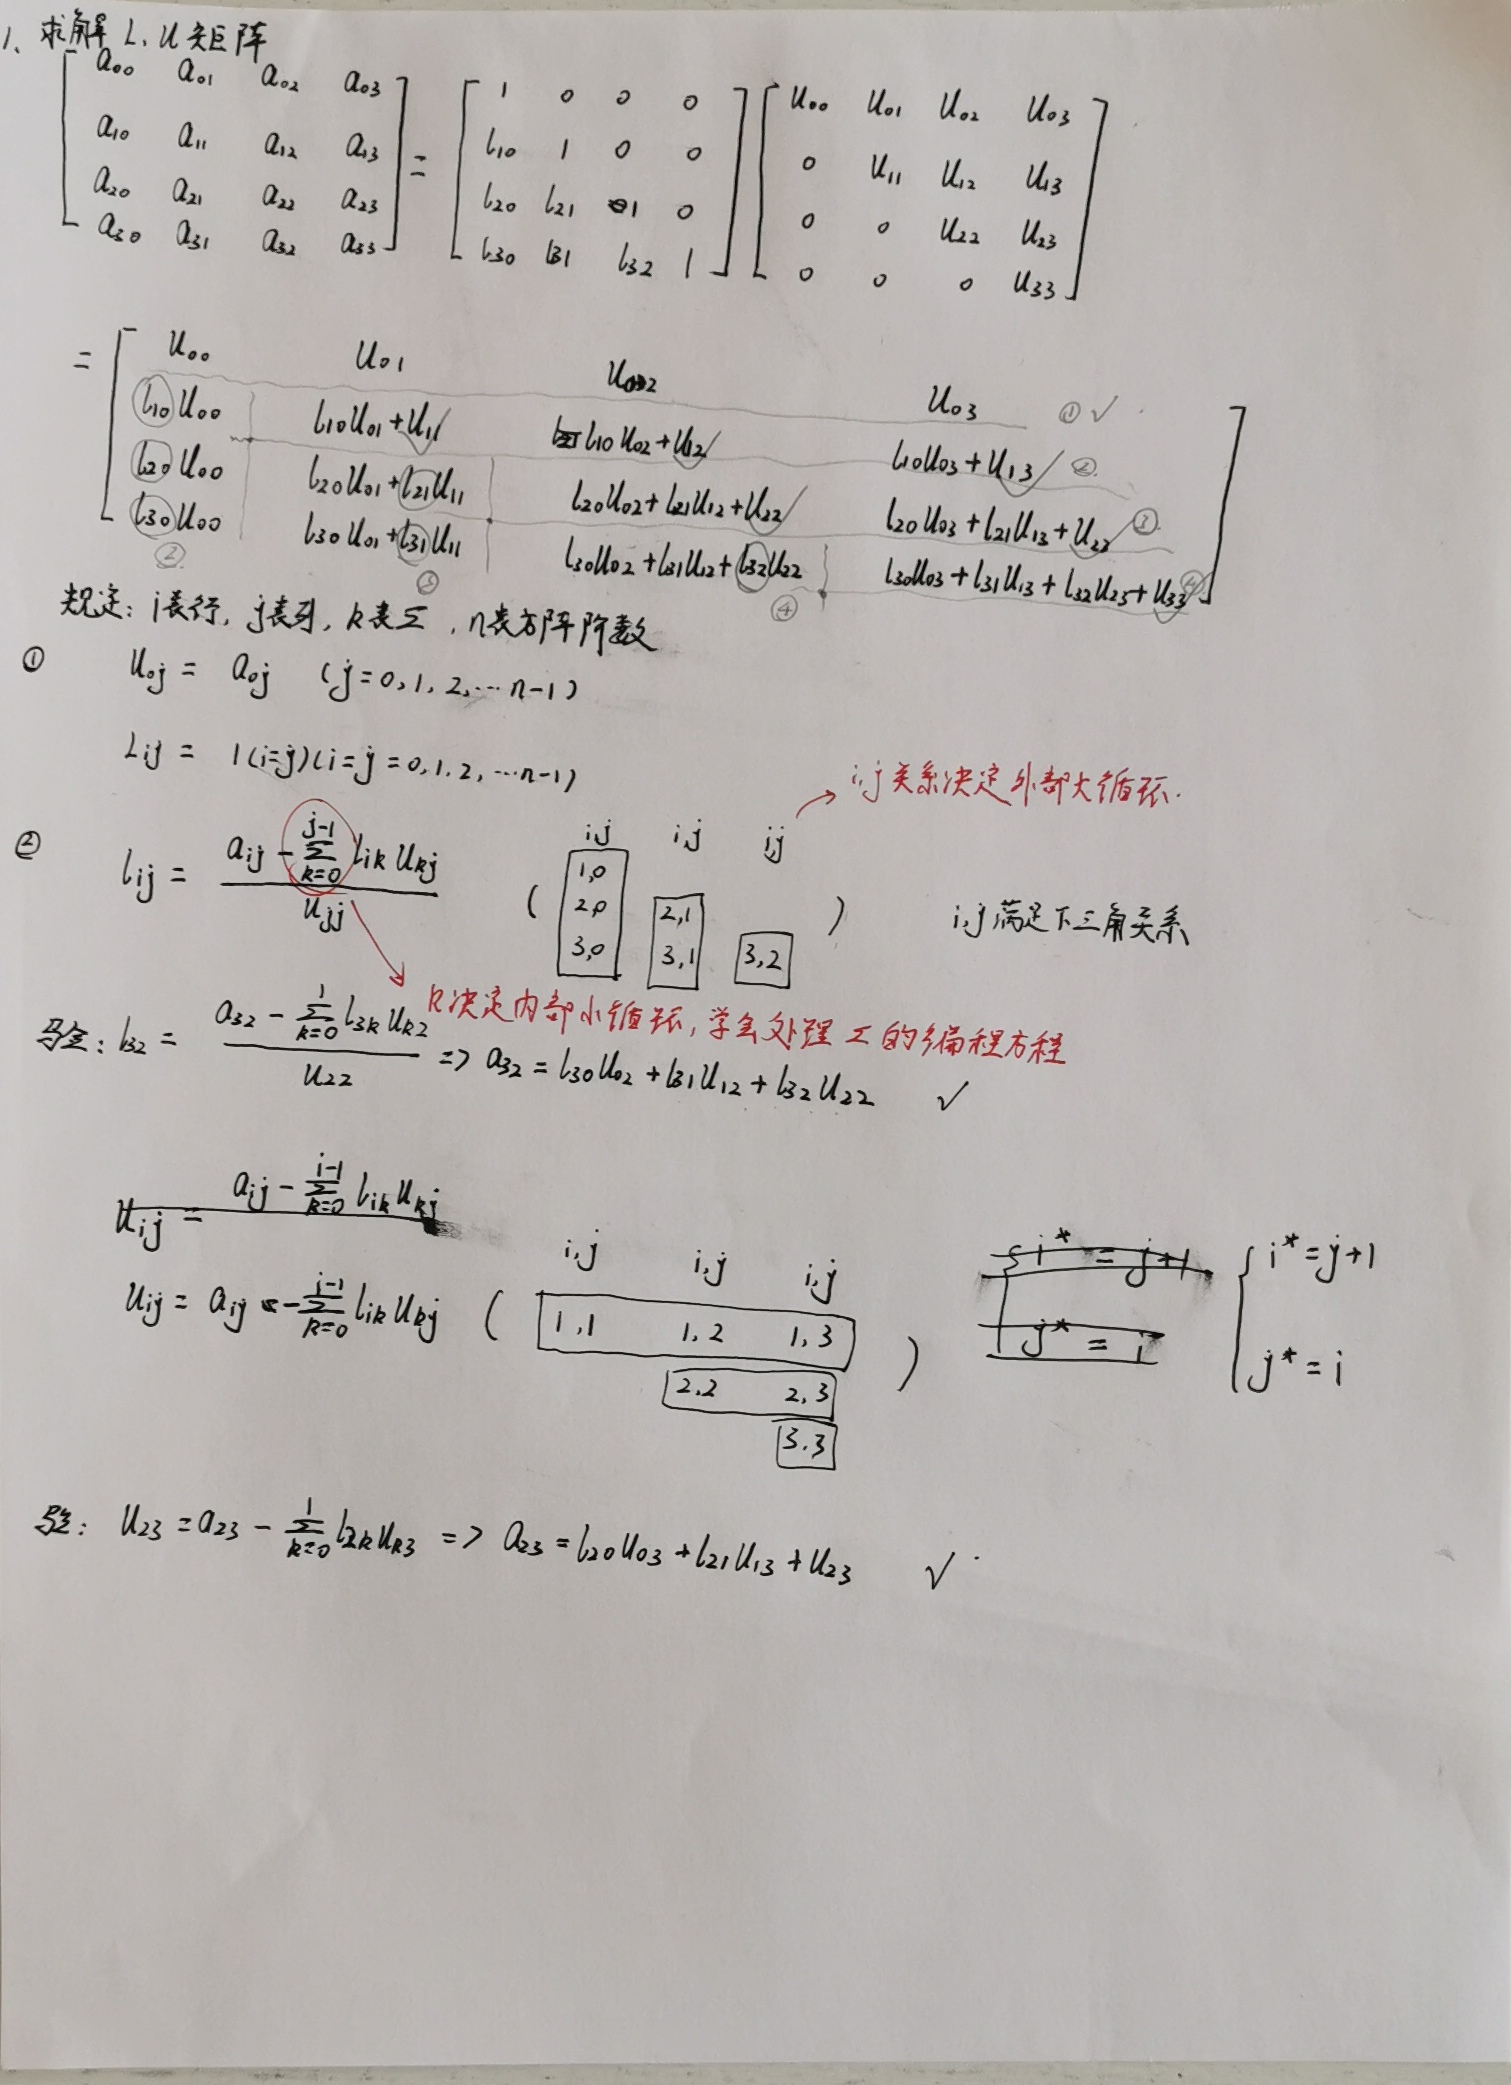 1、求解 L、U 矩阵
a00 a01 a02 a03
a10 a11 a12 a13
a20 a21 a22 a23
a30 a31 a32 a33
=
1 0 0 0
l10 1 0 0
l20 l21 1 0
l30 l31 l32 1
u00 u01 u02 u03
0 u11 u12 u13
0 0 u22 u23
0 0 0 u33
= u00 u01 u02 u03 ① ✓
l10u00 l10u01+u11 l10u02+u12 l10u03+u13 ②
l20u00 l20u01+l21u11 l20u02+l21u12+u22 l20u03+l21u13+u23 ③
l30u00 l30u01+l31u11 l30u02+l31u12+l32u22 l30u03+l31u13+l32u23+u33 ④
② ③ ④
规定: i表行, j表列, k表Σ, n表方阵阶数
① u0j = a0j (j=0,1,2,…n-1)
Lij = 1(i=j)(i=j=0,1,2,…n-1)
i,j关系决定外部大循环.
② lij = (aij - Σ(k=0, j-1) lik ukj) / ujj
( i,j i,j i,j
1,0
2,0 2,1
3,0 3,1 3,2 )
i,j满足下三角关系
k决定内部小循环, 学会处理Σ的编程方程
验: l32 = (a32 - Σ(k=0, 1) l3k uk2) / u22 => a32 = l30u02 + l31u12 + l32u22 ✓
uij = aij - Σ(k=0, i-1) lik ukj
uij = aij - Σ(k=0, i-1) lik ukj
( i,j i,j i,j
1,1 1,2 1,3
2,2 2,3
3,3 )
i* = j+1
j* = i
i* = j+1
j* = i
验: u23 = a23 - Σ(k=0, 1) l2k uk3 => a23 = l20u03 + l21u13 + u23 ✓